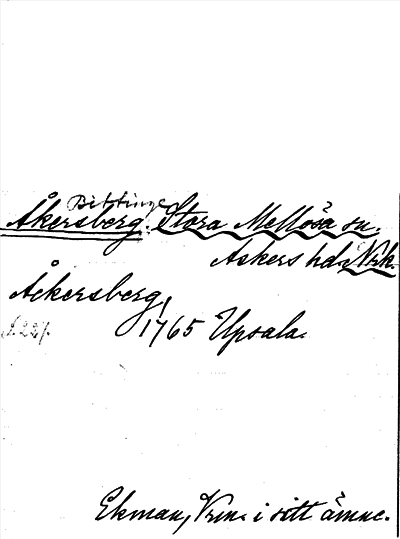 Bittinge
Åkersberg. Stora Mellösa sn.
Askers hd. Nrk.
Åckersberg,
1765 Upsala.
Ekman, Vrm. i sitt ämne.